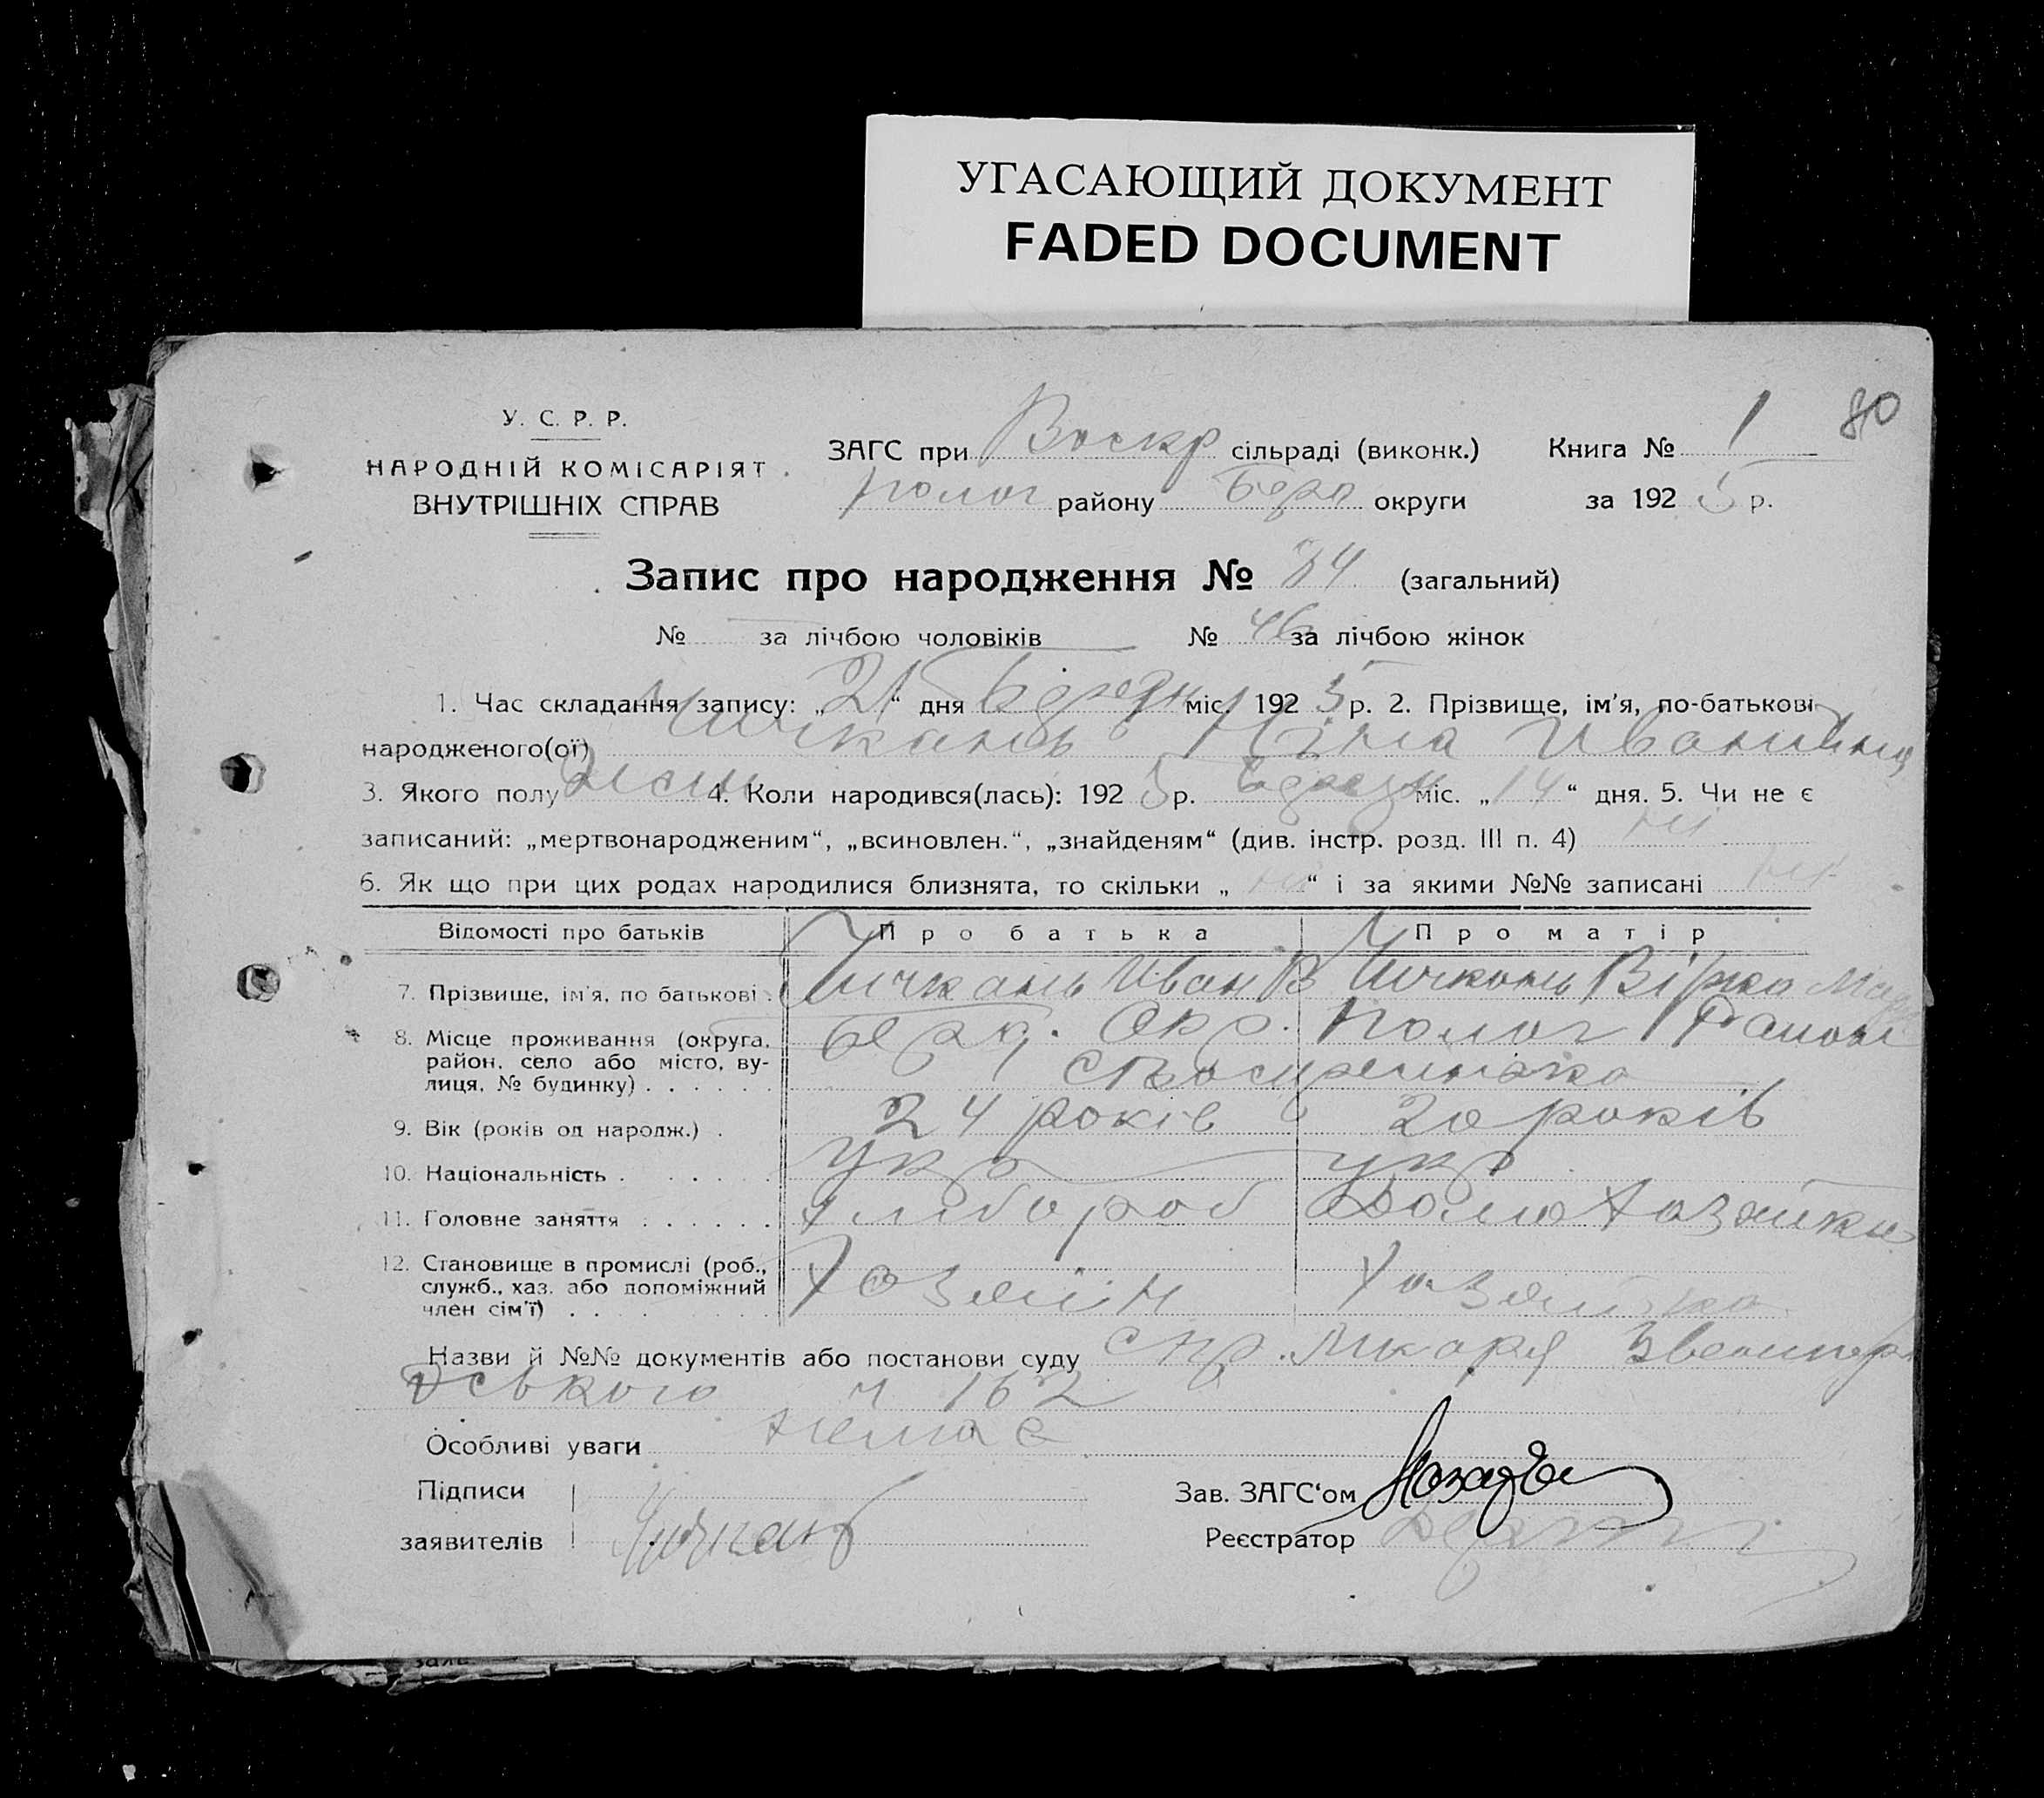 УГАСАЮЩИЙ ДОКУМЕНТ
FADED DOCUMENT
У. С. Р. Р.
НАРОДНІЙ КОМІСАРІЯТ
ВНУТРІШНІХ СПРАВ
ЗАГС при Воскр сільраді (виконк.) Книга № 1 80
Полог району Берд округи за 1925 р.
Запис про народження № 84 (загальний)
№ — за лічбою чоловіків № 46 за лічбою жінок
1. Час складання запису: „21“ дня міс. 1925 р. 2. Прізвище, ім'я, по-батькові
народженого(ої) Чичкань Ніна Ивановна
3. Якого полу жін 4. Коли народився(лась): 1925 р. міс. „14“ дня. 5. Чи не є
записаний: „мертвонародженим“, „всиновлен.“, „знайденям“ (див. інстр. розд. III п. 4) ні
6. Як що при цих родах народилися близнята, то скільки „ні“ і за якими №№ записані ні
Відомості про батьків Про батька Про матір
7. Прізвище, ім'я, по батькові . Чичкань Иван В Чичкань Вірка
8. Місце проживання (округа, район, село або місто, вулиця, № будинку) . . . . . . Берд. Окр. Полог Район
9. Вік (років од народж.) . 24 років 20 років
10. Національність . . . . . укр укр
11. Головне заняття . . . . . . хлібороб Домохозяйка
12. Становище в промислі (роб., служб., хаз. або допоміжний член сім'ї) . . . . хозяїн хозяйка
Назви й №№ документів або постанови суду спр. лікаря
ського ч 162
Особливі уваги немає
Підписи
заявителів Чичкань
Зав. ЗАГС'ом
Реєстратор